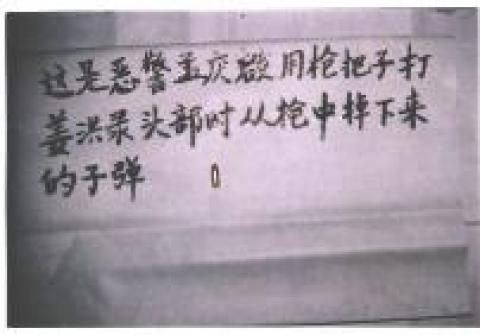 这是恶警孟庆启用枪把子打
姜洪录头部时从枪中掉下来
的子弹